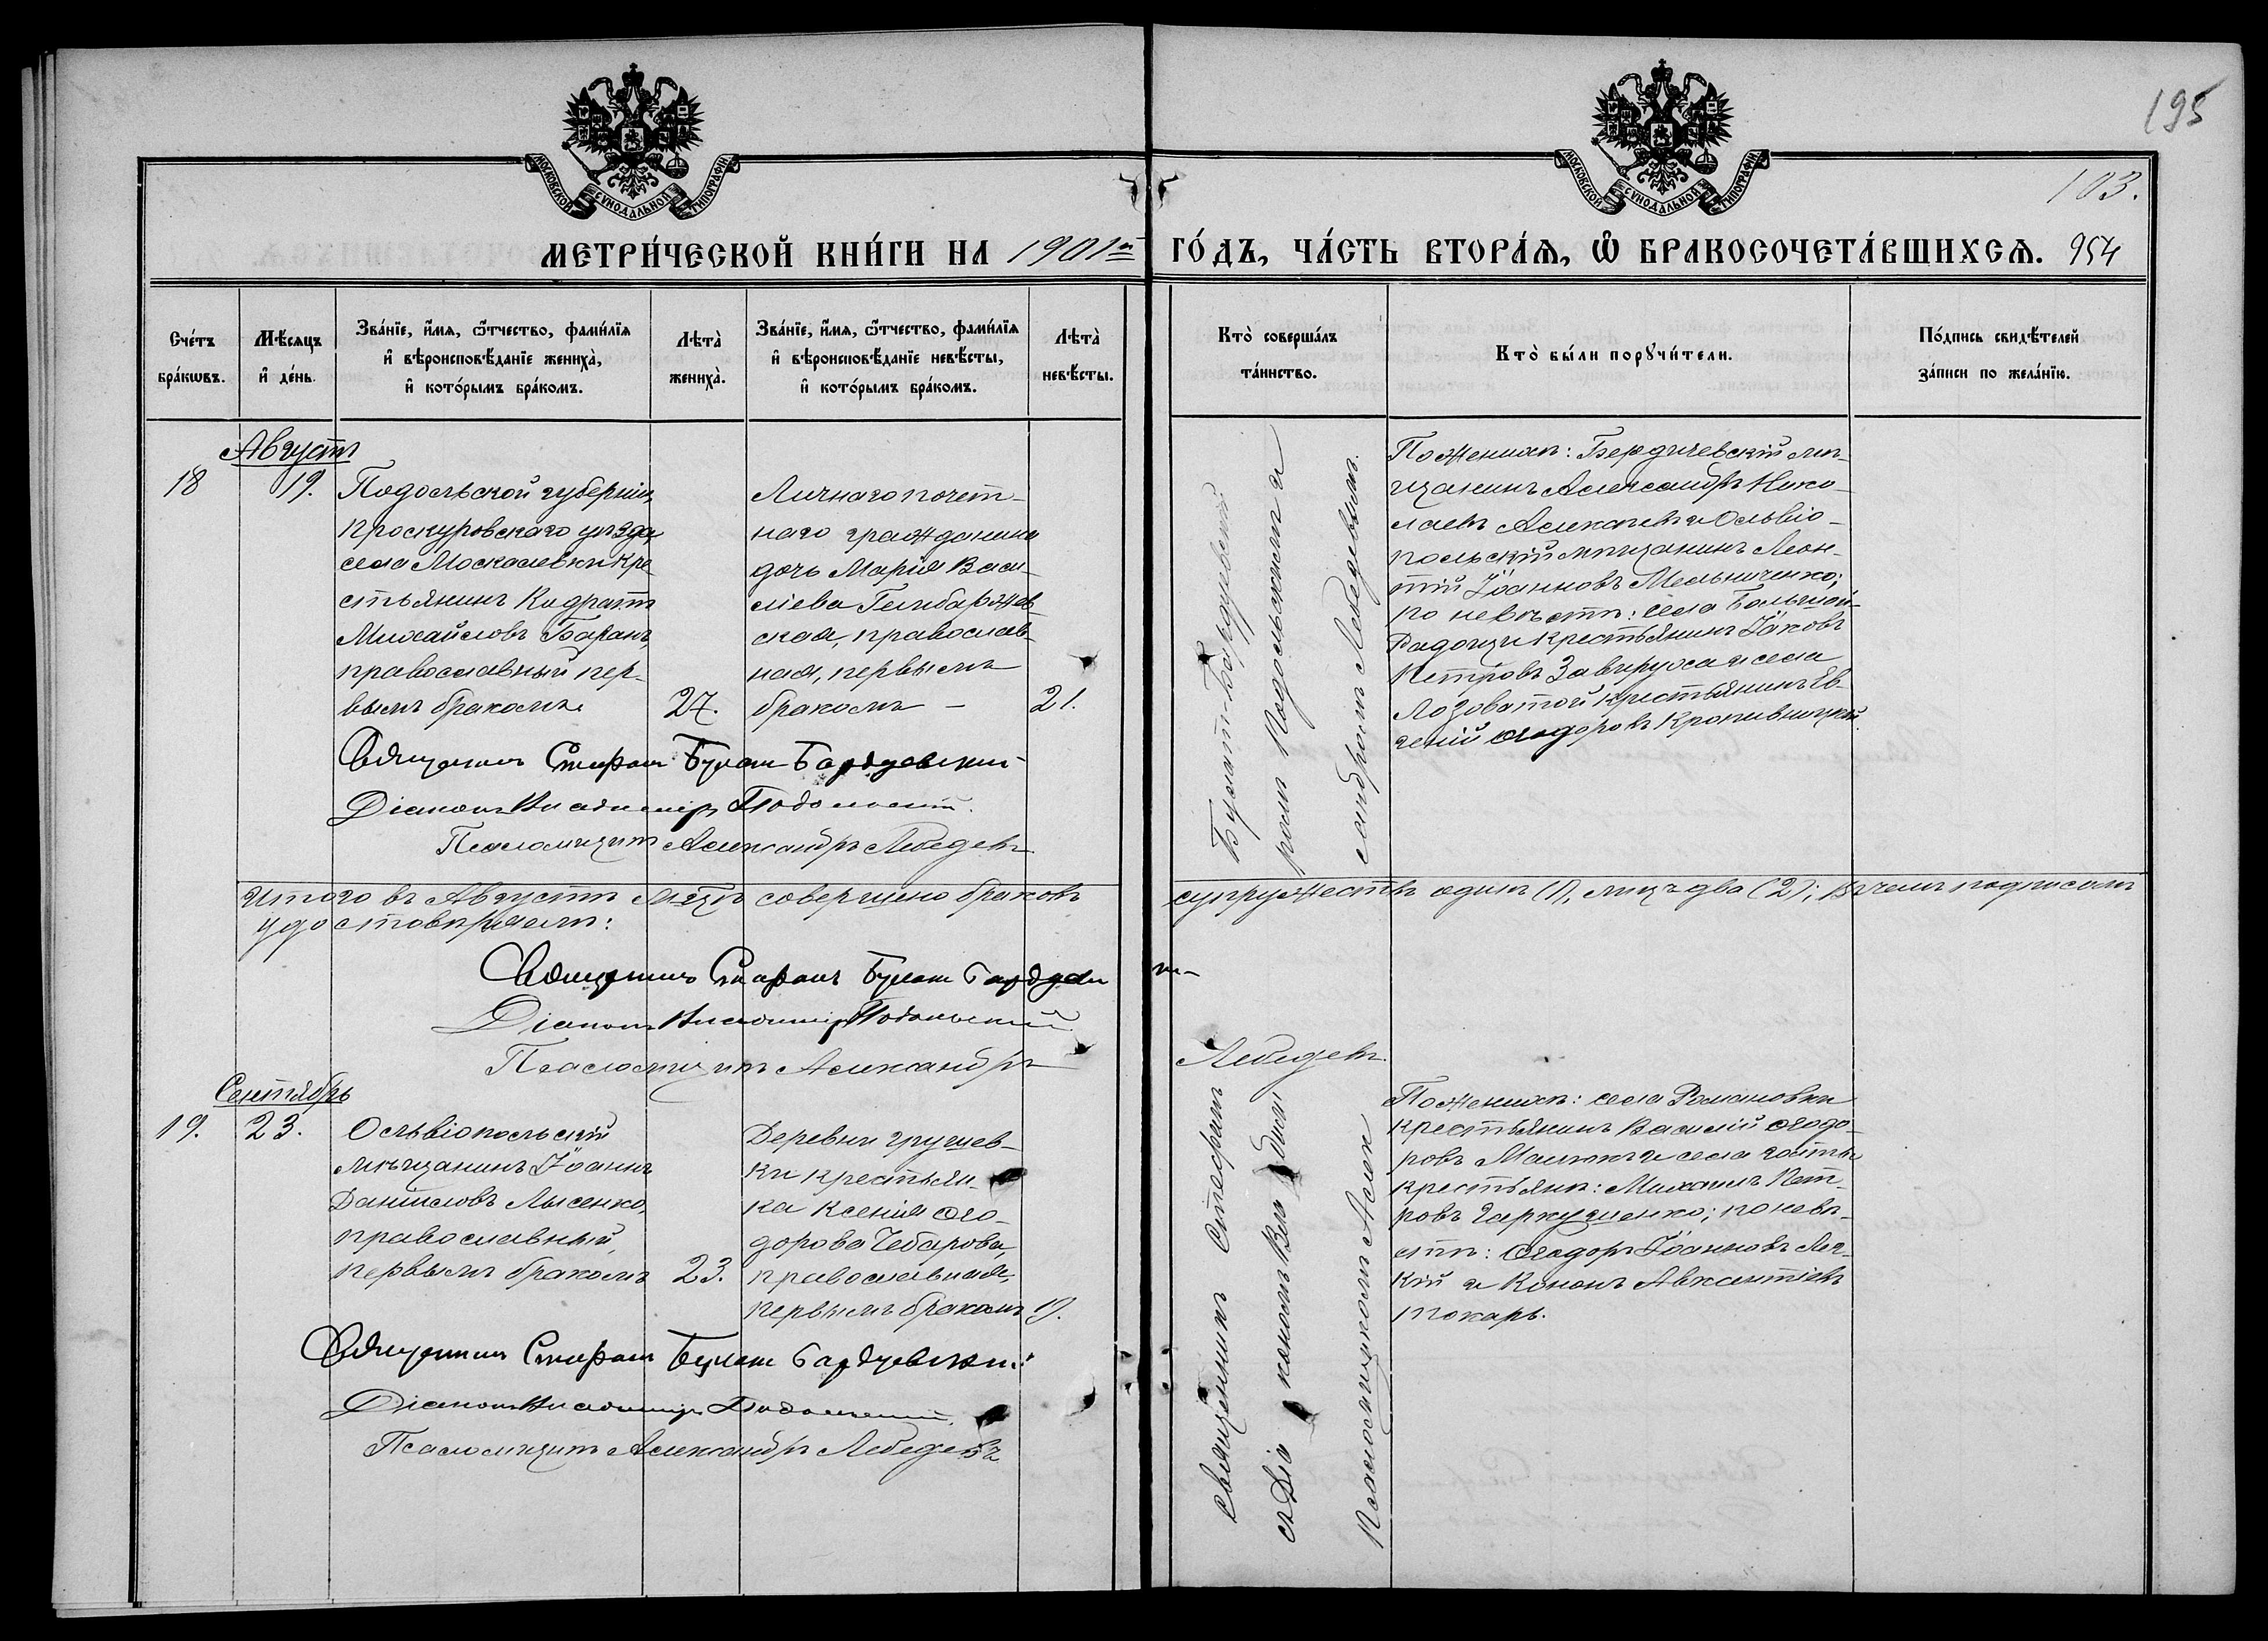 195
103.
МОСКОВСКОЙ СУНОДАЛЬНОЙ ТИПОГРАФІИ
МОСКОВСКОЙ СУНОДАЛЬНОЙ ТИПОГРАФІИ
МЕТРИ́ЧЕСКОЙ КНИ́ГИ НА 1901й ГО́ДЪ, ЧА́СТЬ ВТОРА́Ѧ, Ѽ БРАКОСОЧЕТА́ВШИХСѦ. 954
Сче́тъ бра́кѡвъ.
Мѣ́сѧцъ и҆ де́нь.
Зва́нїе, и҆́мѧ, ѻ҆́тчество, фами́лїѧ
и҆ вѣроисповѣ́данїе жениха̀,
и҆ кото́рымъ бра́комъ.
Лѣта̀ жениха̀.
Зва́нїе, и҆́мѧ, ѻ҆́тчество, фами́лїѧ
и҆ вѣроисповѣ́данїе невѣ́сты,
и҆ кото́рымъ бра́комъ.
Лѣта̀ невѣ́сты.
Кто̀ соверша́лъ
та́инство.
Кто̀ бы́ли порꙋчи́тели.
По́дпись свидѣ́телей
за́писи по жела́нїю.
Августъ
18
19.
Подольской губерніи,
Проскуровскаго уѣзда,
села Москалевки кре-
стьянинъ Кодратъ
Михайловъ Баранъ,
православный пер-
вымъ бракомъ.
27.
Личнаго почет-
наго гражданина
дочь Марія Васи-
ліева Гембаржев-
ская, православ-
ная, первымъ
бракомъ -
21.
Булатъ-Бардуевскій
комъ Подольскимъ и
сандромъ Лебедевымъ.
По женихѣ: Бердичевскій мѣ-
щанинъ Александръ Нико-
лаевъ Алексѣевъ и Ольвіо-
польскій мѣщанинъ Леон-
тій Іоанновъ Мельниченко;
по невѣстѣ: села Большой-
крестьянинъ Іаковъ
Петровъ Завируха и села
Лозоватой крестьянинъ Ев-
геній Ѳеодоровъ Кропивницкій.
Священникъ Стефанъ Булатъ Бардуевскій
Діаконъ Владиміръ Подольскій.
Псаломщикъ Александръ Лебедевъ
Итого въ Августѣ м-цѣ совершено браковъ супружествъ одинъ (1), лицъ два (2); въ чемъ подписомъ
удостовѣряемъ:
Священникъ Стефанъ Булатъ Бардуевскій-
Діаконъ Владиміръ Подольскій.
Псаломщикъ Александръ Лебедевъ.
Сентябрь
19.
23.
Ольвіопольскій
мѣщанинъ Іоаннъ
Даниловъ Лысенко,
православный,
первымъ бракомъ
23.
Деревни Грушев-
ки крестьян-
ка Ксенія Ѳео-
дорова Чебарова,
православная,
первымъ бракомъ
19.
Священникъ Стефанъ
съ Діакономъ Вла
Псаломщикомъ Алек
По женихѣ: села Романовки
крестьянинъ Василій Ѳеодо-
ровъ и села
крестьян: Михаилъ Пет-
ровъ Гаркушенко; по невѣ-
стѣ: Ѳеодоръ Іоанновъ
и Кононъ Авксентіевъ
Токарь.
Священникъ Стефанъ Булатъ Бардуевскій
Діаконъ Владиміръ Подольскій.
Псаломщикъ Александръ Лебедевъ